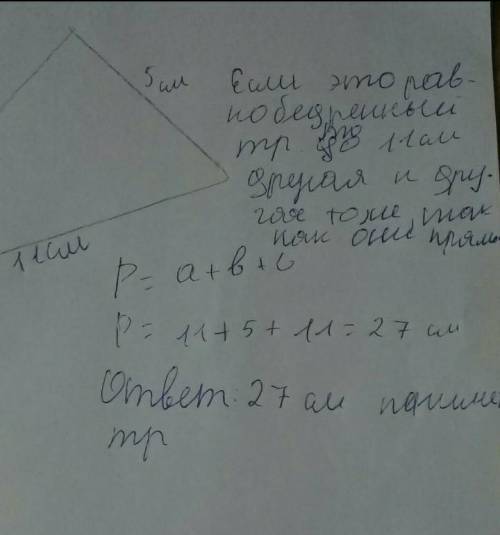 5 см
Если это рав-
нобедренный
тр. то 11 см
другая и дру-
гая тоже, так
как они прям
11 см
P = a + b + c
P = 11 + 5 + 11 = 27 см
Ответ: 27 см
тр